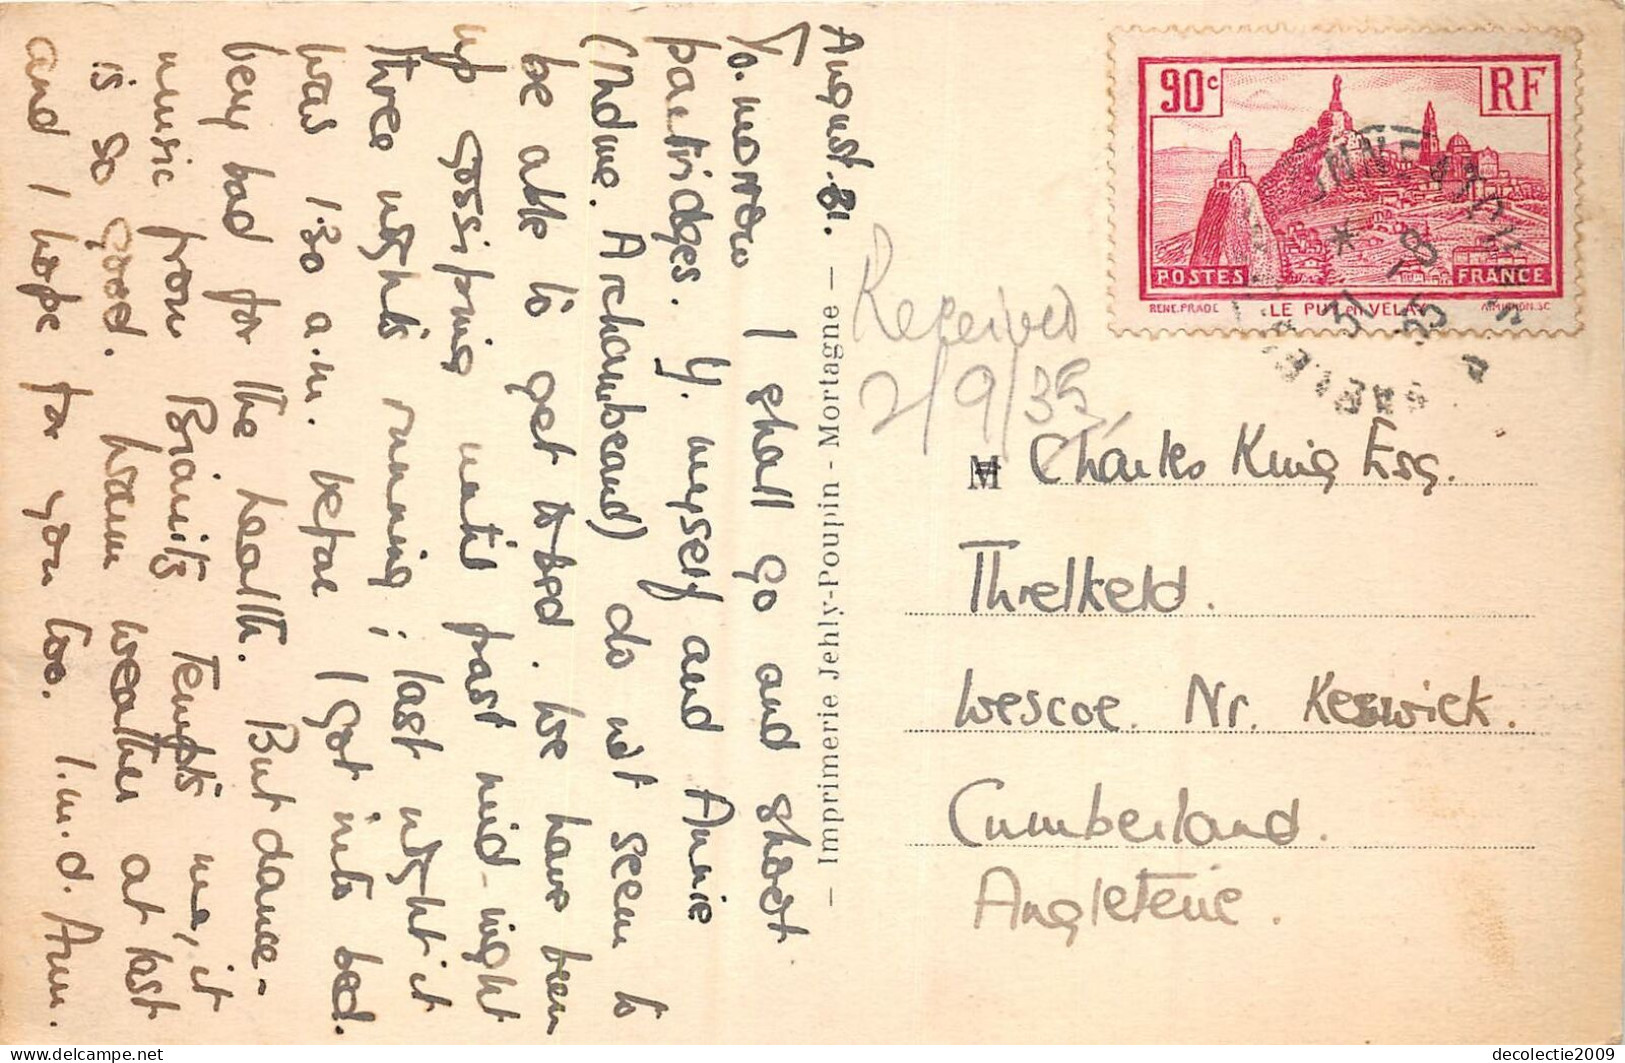 August 31.
To-morrow I shall go and shoot
partridges. Y. myself and Annie
(Mdme. Archambeaud) do not seem to
be able to get to bed. We have been
up gossiping until past mid-night
three nights running; last night it
was 1.30 a.m. before I got into bed.
very bad for the health. But dance-
music from Biarritz tempts me, it
is so good. Warm weather at last
and I hope for you too. Ann.
- Imprimerie Jehly-Poupin - Mortagne -
90c
RF
POSTES
FRANCE
RENE.PRADE
LE PUY en VELAY
A.MIGNON.SC
31
8
35
Received
2/9/35
M Charles King Esq.
Threlkeld.
Wescoe. Nr. Keswick.
Cumberland.
Angleterre.
decolectie2009